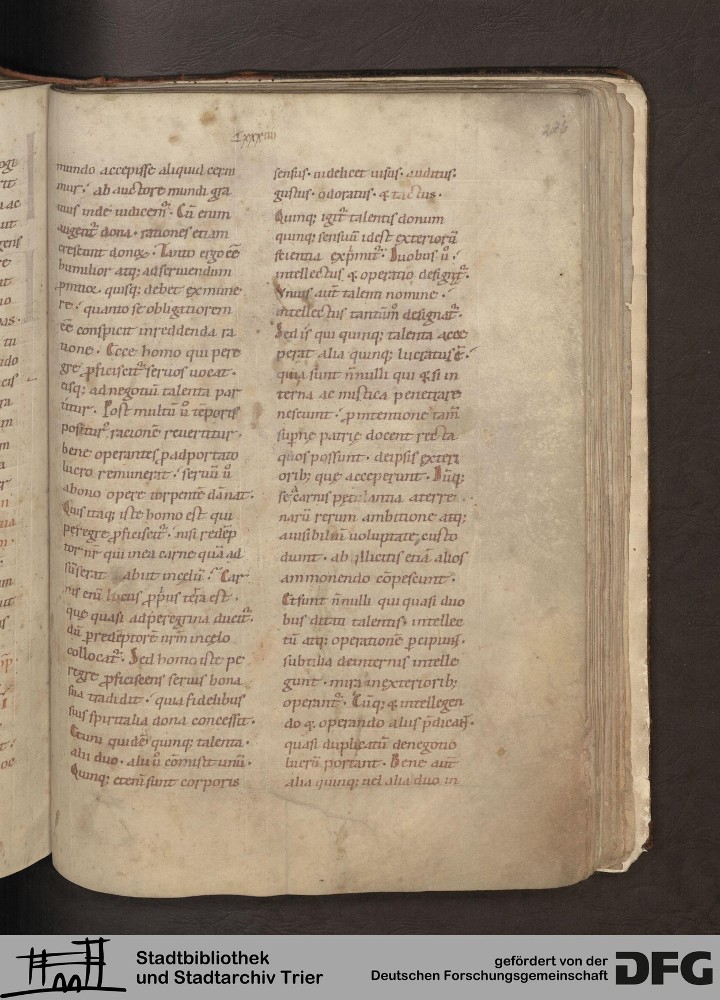 Lxxxiiii
226
mundo accepisse aliquid cerni
mur · ab auctore mundi gra
uius inde iudicem᷑ · Cū enim
augent᷑ dona · rationes etiam
crescunt donoꝝ · Tanto ergo eē
humilior atq; ad seruiendum
ꝓmtior quisq; debet ex mune
re · quanto se obligatiorem
eē conspicit in reddenda ra
tione · Ecce homo qui pere
gre ꝓficiscit᷑ seruos uocat ·
eisq; ad negotiū talenta par
titur · Post multū u̇ tēporis
positur᷑ racionē reuertitur ·
bene operantes ꝑ adportato
lucro remunerat · seruū u̇
a bono opere torpentē dānat ·
Quis itaq; iste homo est qui
peregre ꝓficiscit᷑ · nisi redēp
tor nr̄ qui in ea carne quā ad
sūserat abiit in celū · Car
nis enī locus ꝓp̄us tēra est ·
que quasi ad peregrina ducit᷑ ·
dū ꝑ redēptorē nrm̄ in celo
collocat᷑ · Sed homo iste pe
regre ꝓficiscens seruis bona
sua tradidit · quia fidelibus
suis spiritalia dona concessit ·
Et uni quidē quinq; talenta ·
alii duo · alii u̇ cōmisit unū ·
Quinq; etem̄ sunt corporis
sensus · uidelicet uisus · auditus ·
gustus · odoratus · & tactus ·
Quinq; igit᷑ talentis donum
quinq; sensuū id est exteriorū
scientia exp̄mit᷑ · Duobus u̇ ·
intellectus & operatio design᷑ ·
Vnius aut̄ talenti nomine ·
intellectus tantūm designat᷑ ·
Sed is qui quinq; talenta acce
perat alia quinq; lucratus ē ·
quia sunt nnulli qui &si in
terna ac mistica penetrare
nesciunt · ꝑ intentione tam̄
supnē patrie docent recta
quos possunt · de ipsis exteri
orib; que acceperunt · Dūq;
se a carnis petulantia a terre
narū rerum ambitione atq;
a uisibiliū uoluptate custo
diunt · ab illicitis etiā alios
ammonendo cōpescunt ·
Et sunt nnulli qui quasi duo
bus ditati talentis · intellec
tū atq; operationē ꝑcipiunt ·
subtilia de internis intelle
gunt · mira in exteriorib;
operant᷑ · Cūq; & intellegen
do & operando aliis p̄dicant ·
quasi duplicatū de negotio
lucrū portant · Bene aut̄
alia quinq; uel alia duo in
Stadtbibliothek
und Stadtarchiv Trier
gefördert von der
Deutschen Forschungsgemeinschaft
DFG